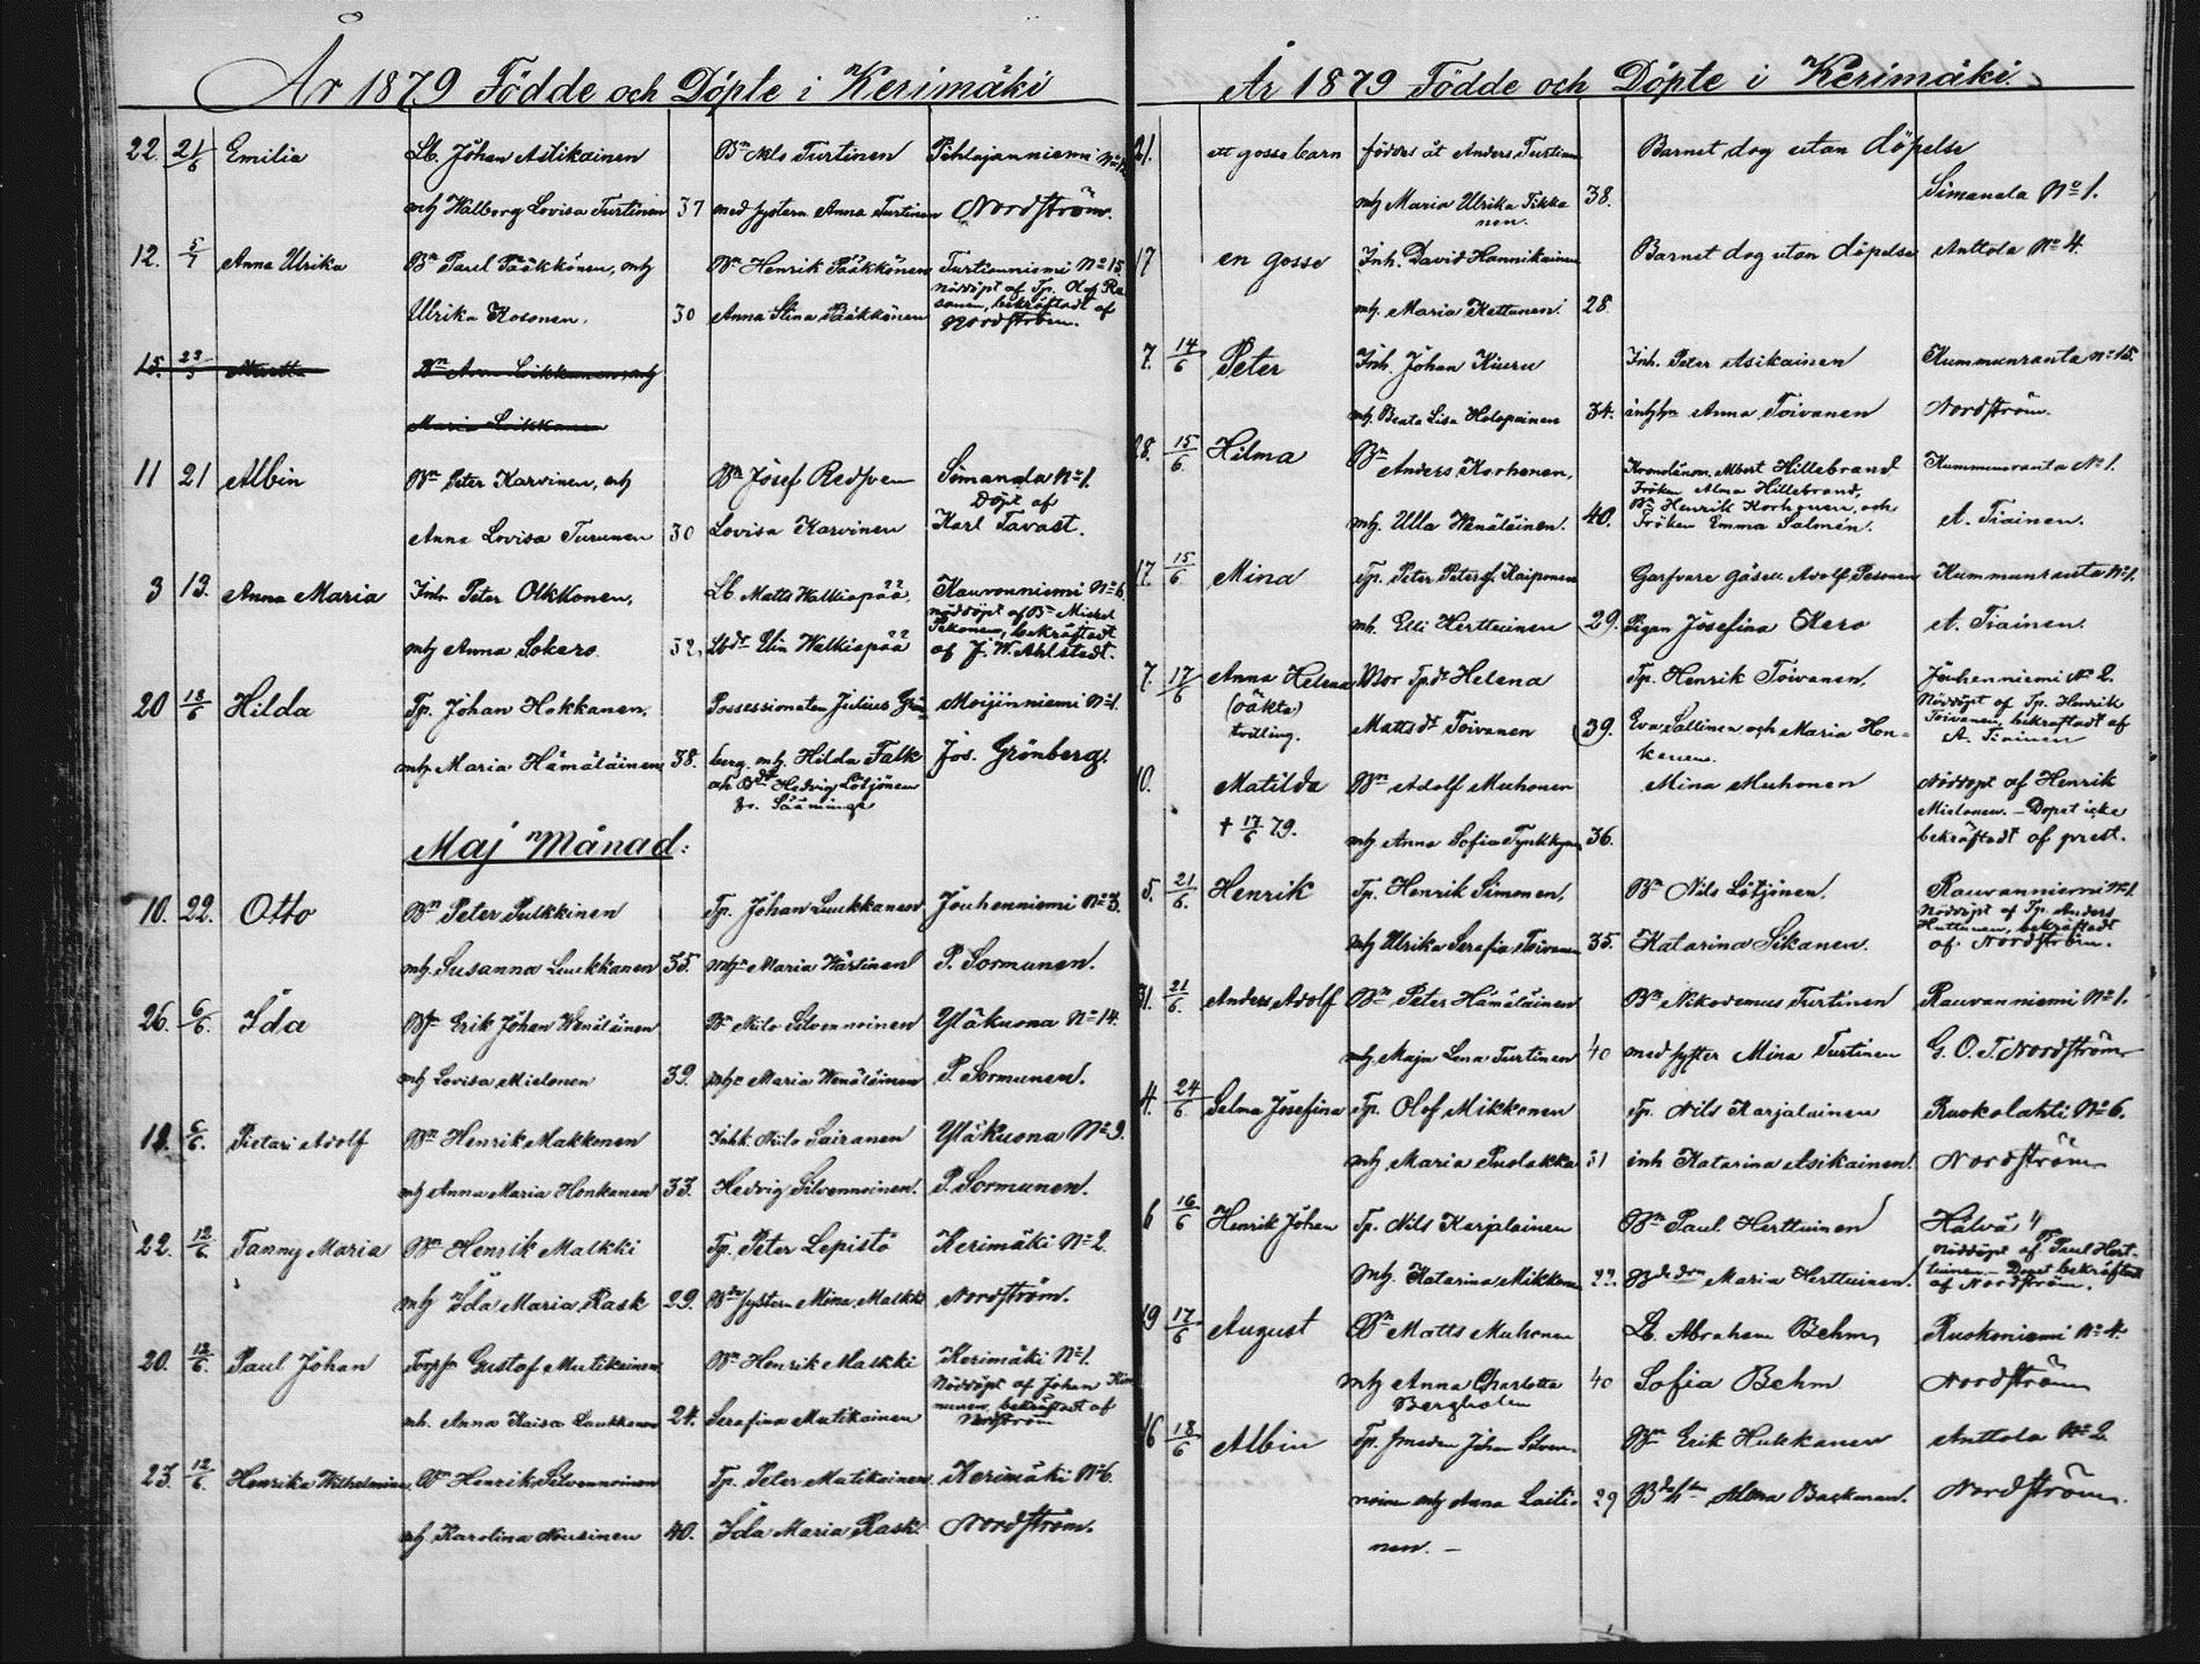 År 1879 Födde och Döpte i Kerimäki
22. 21/6 Emilia Lb. Johan Astikainen Bn Nils Turtinen Pihlajanniemi
mh Walborg Lovisa Turtinen 37 med system Anna Turtinen Nordström.
12. 5/7 Anna Ulrika Bn Paul Pääkkönen, mh Bn Henrik Pääkkönen Turtianniemi No 15.
nöddöpt af Tp. Olof Ra
Ulrika Kosonen. 30 Anna Stina Pääkkönen sanen, bekräftadt af
Nordström.
15. 23/5 Martta Bn Likkanen mh
Maria Loikkanen
11 21 Albin Bn Peter Karvinen, mh Bn Josef Redsven Simanala No 1.
Döpt af
Anna Lovisa Turunen 30 Lovisa Karvinen Karl Tavast.
3 13. Anna Maria Inh. Peter Olkkonen, Lb Matts Walkiapää, Rauvanniemi No 6.
nöddöpt af Bn Mickel
Pekonen, bekräftadt
mh Anna Sokero 32, Lbdr Ulla Walkiapää af J. W. Ahlstedt.
20 18/6 Hilda Tp. Johan Hokkanen, Possessionaten Julius Grön Moijinniemi No 1.
mh Maria Hämäläinen 38. berg mh. Hilda Falk Jos. Grönberg.
och Bdr Hedvig Lötjönen
fr. Sääminge
Maj Månad:
10. 22. Otto Bn Peter Pulkkinen Tp. Johan Luukkanen Jouhenniemi No 3.
mh. Susanna Luukkanen 35. mh Maria Wärtinen P. Sormunen.
26. 6/6. Ida Bn Erik Johan Wenäläinen Bn Niilo Silvennoinen Yläkuona No 14.
mh Lovisa Mielonen 39. mh Maria Wenäläinen P. Sormunen.
18. 6/6. Pietari Adolf Bn Henrik Makkonen Inh. Niilo Sairanen Yläkuona No 9.
mh Anna Maria Honkanen 33. Hedvig Silvennoinen. P. Sormunen.
22. 12/6. Fanny Maria Bn Henrik Malkki Tp. Peter Lepistö Kerimäki No 2.
mh Ida Maria Rask 29. system Mina Malkki Nordström.
20. 12/6. Paul Johan Gustaf Mutikainen Bn Henrik Malkki Kerimäki No 1.
Nöddöpt af Johan
mh. Anna Kaisa Laukkanen 24. Serafina Mutikainen nunen bekräftadt af
Nordström
23. 12/6. Henrika Wilhelmina Bn Henrik Silvennoinen Tp. Peter Mutikainen. Kerimäki No 6.
mh Karolina Nousinen 40. Ida Maria Rask Nordström.
År 1879 Födde och Döpte i Kerimäki.
21. ett gossebarn föddes åt Anders Turtinen Barnet dog utan döpelse
mh Maria Ulrika Tikka 38. Simanala No 1.
nen.
17 en gosse Inh. David Hannikainen Barnet dog utan döpelse Anttola No 4.
mh. Maria Kettunen 28.
7. 14/6 Peter Inh. Johan Kiuru Inh. Peter Asikainen Kummunranta No 15.
mh. Beata Lisa Holopainen 34. Anna Toivanen Nordström.
28. 15/6. Hilma Bn Anders Korhonen, Kronolänsm. Albert Hillebrand Kummunranta No 1.
Fröken Alma Hillebrand,
Bn Henrik Korhonen, och
mh. Ulla Wenäläinen. 40. Fröken Emma Salmén. A. Tiainen.
17. 15/6 Mina Tp. Peter Peters. Kaiponen Garfvare Gäsell Adolf Pesonen Kummunranta No 1.
mh. Elli Herttuinen 29. Pigan Josefina Kero A. Tiainen.
7. 17/6 Anna Helena Mor Tp.dr Helena Tp. Henrik Toivanen, Jouhenniemi No 2.
(oäkta) Nöddöpt af Tp. Henrik
tvilling. Mattsdr Toivanen 39. Eva Sallinen och Maria Hon- Toivanen, bekräftadt af
kanen. A. Tiainen
10. Matilda Bn Adolf Muhonen Mina Muhonen Nöddöpt af Henrik
Mielonen. – Dopet icke
† 17/6 79. mh Anna Sofia Tynkkynen 36. bekräftadt af prest.
5. 21/6. Henrik Tp. Henrik Simonen, Bn Nils Lötjönen. Rauvanniemi No 1.
Nöddöpt af Tp. Anders
Huttunen, bekräftadt
mh Ulrika Serafia Toivanen 35. Katarina Sikanen. af Nordström.
31. 21/6. Anders Adolf Bn Peter Hämäläinen Bn Nikodemus Turtinen Rauvanniemi No 1.
mh. Maja Lena Turtinen 40 med syster Mina Turtinen G. O. T. Nordström
4. 24/6. Selma Josefina Tp. Olof Mikkonen Tp. Nils Karjalainen Ruokolahti No 6.
mh Maria Puolakka 31 inh Katarina Asikainen. Nordström
6 16/6 Henrik Johan Tp. Nils Karjalainen Bn Paul Herttuinen Hälvä 4
Nöddöpt af Bn Paul Hert-
mh. Katarina Mikkonen 22. Maria Herttuinen. tuinen – Dopet bekräftadt
af Nordström.
19 17/6 August Bn Matts Muhonen Lb. Abraham Behm, Ruokoniemi No 4.
mh Anna Charlotta 40 Sofia Behm Nordström
Bergholm
16 18/6 Albin Tp. smeden Johan Silven- Bn Erik Hukkanen Anttola No 2.
noinen mh Anna Laiti- 29 Alma Backman. Nordström.
nen. –